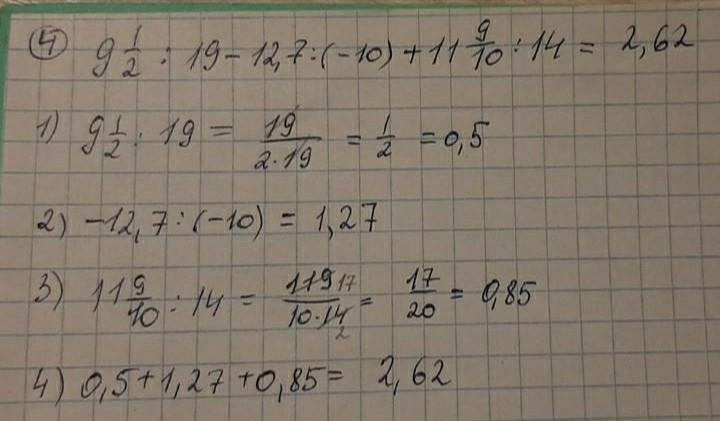 ④ 9 1/2 : 19 - 12,7 : (-10) + 11 9/10 : 14 = 2,62
1) 9 1/2 : 19 = 19/(2·19) = 1/2 = 0,5
2) -12,7 : (-10) = 1,27
3) 11 9/10 : 14 = 119 17/(10·14 2) = 17/20 = 0,85
4) 0,5 + 1,27 + 0,85 = 2,62